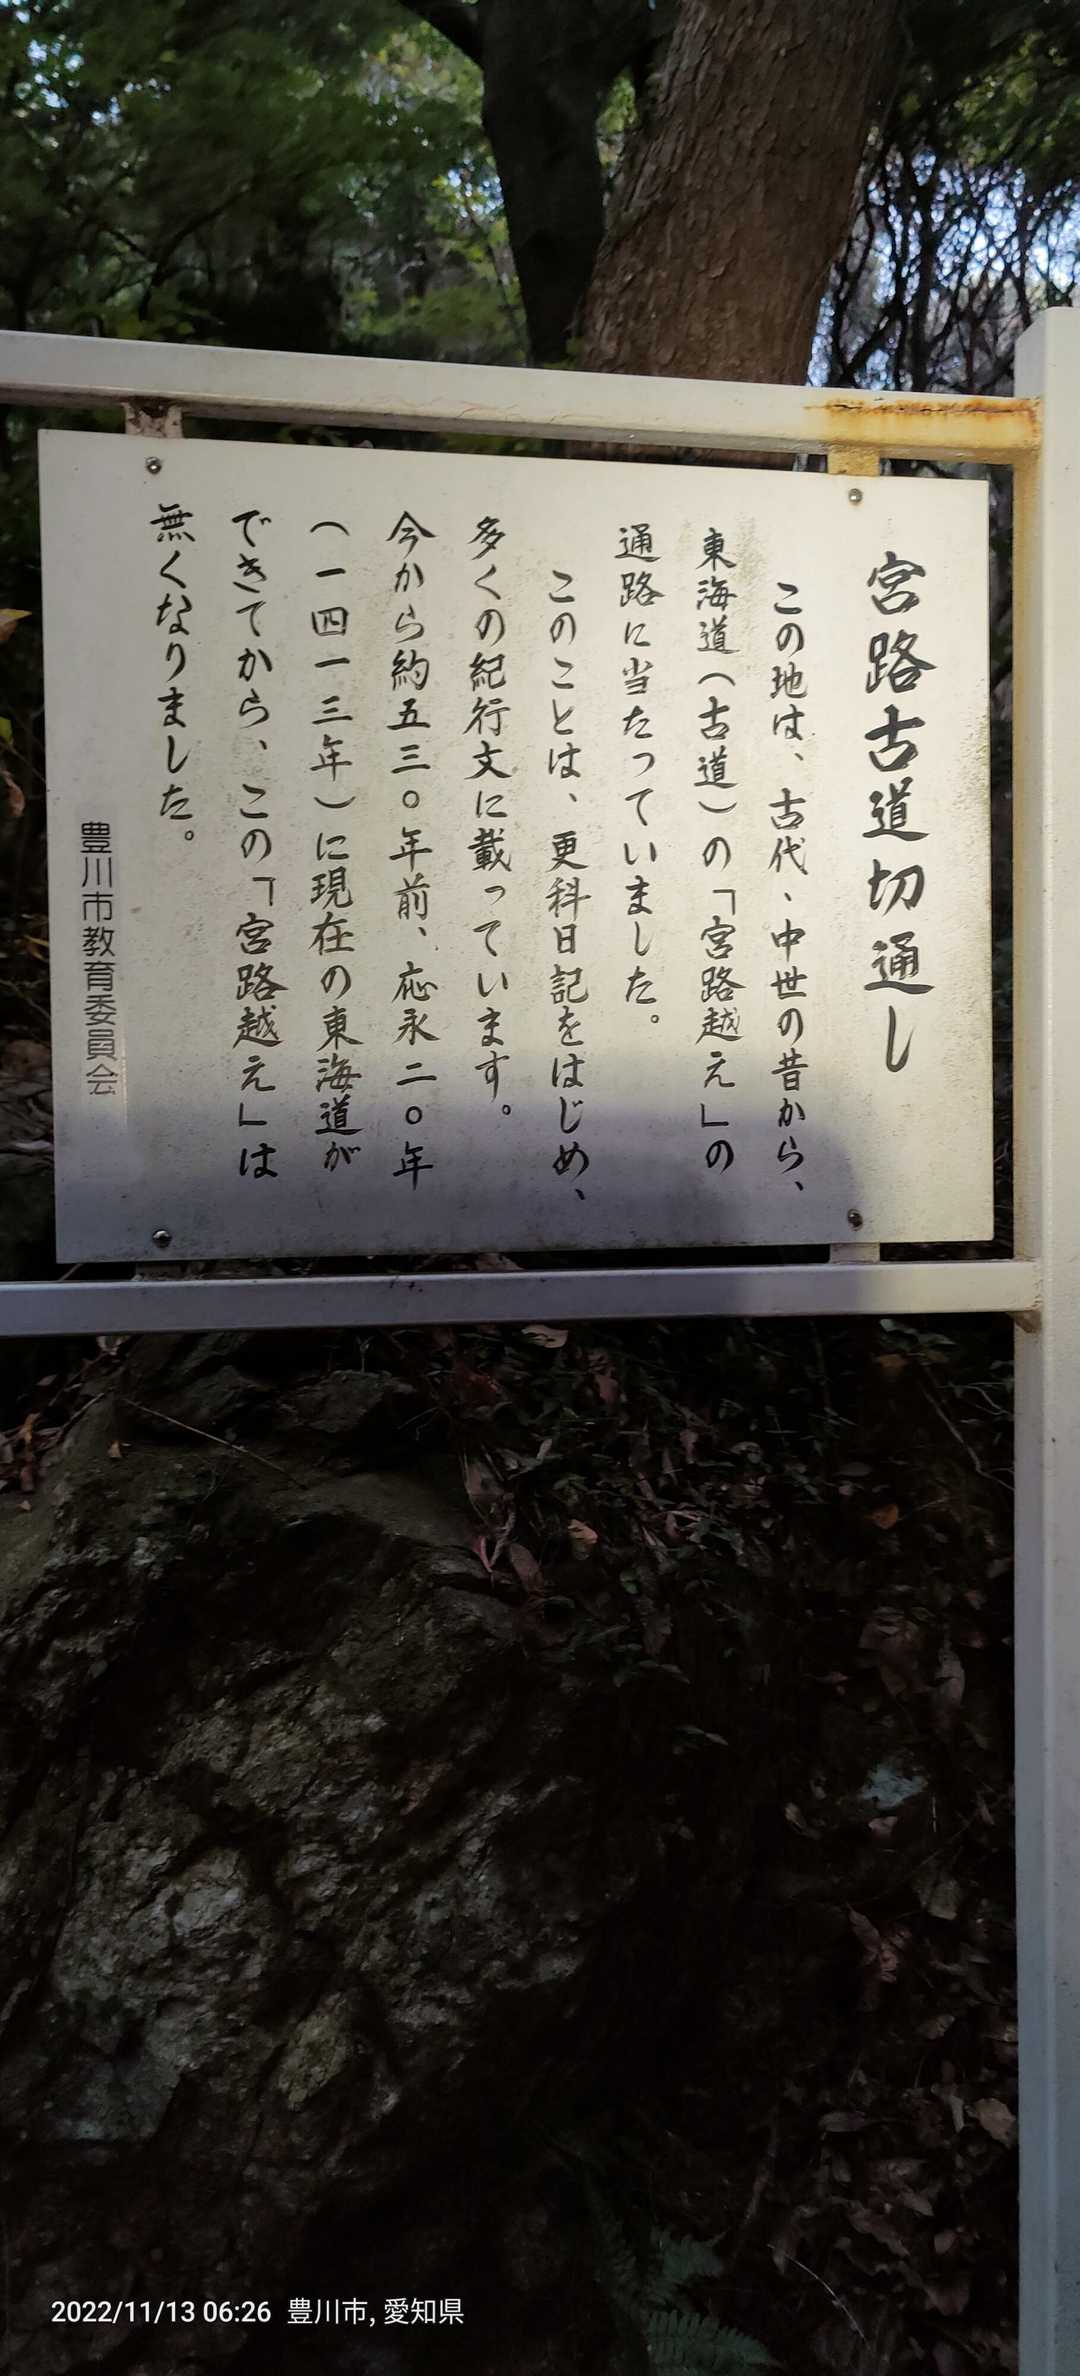 宮路古道切通し
この地は、古代、中世の昔から、
東海道(古道)の「宮路越え」の
通路に当たっていました。
このことは、更科日記をはじめ、
多くの紀行文に載っています。
今から約五三〇年前、応永二〇年
(一四一三年)に現在の東海道が
できてから、この「宮路越え」は
無くなりました。
豊川市教育委員会
2022/11/13 06:26 豊川市, 愛知県